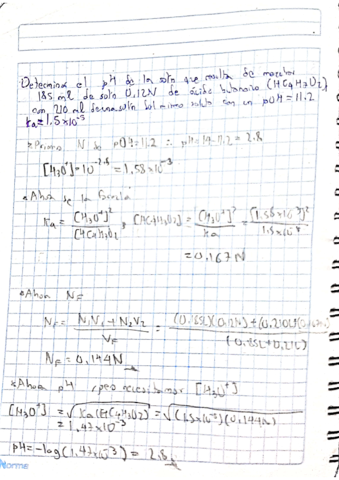 Determina el pH de la soln que resulta de mezclar
185 ml de soln 0.12N de ácido butanoico (HC4H7O2)
con 210 ml de una soln del mismo soluto con un pOH=11.2
Ka=1.5x10⁻⁵
*Primero N de pOH=11.2 ∴ pH=14-11.2=2.8
[H3O⁺]=10⁻²·⁸=1.58x10⁻³
*Ahora de la
Ka=[H3O⁺]²/[HC4H7O2], [HC4H7O2]=[H3O⁺]²/Ka=[1.58x10⁻³]²/1.5x10⁻⁵
=0.167N
*Ahora NF
NF=N1V1+N2V2/VF=(0.12)+(0.210L)
NF=0.144N
*Ahora pH, pero necesitamos [H3O⁺]
[H3O⁺]=√Ka(HC4H7O2)=√(1.5x10⁻⁵)(0.144N)
=1.47x10⁻³
pH=-log(1.47x10⁻³)=2.8
Norma